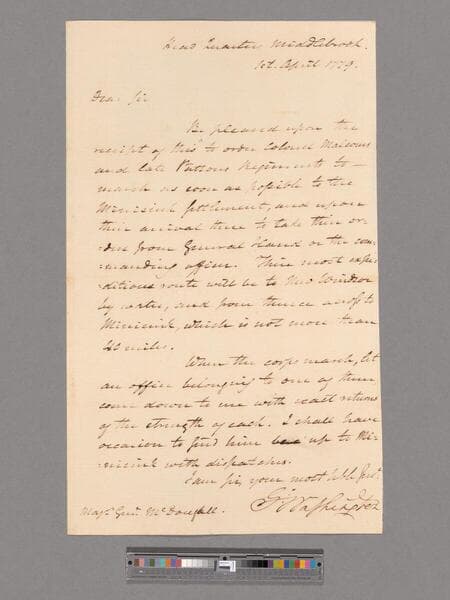 Head Quarters Middlebrook.
1st. April 1779.
Dear Sir
Be pleased upon the
receipt of this to order Colonel Malcoms
and late Pattons Regiments to
march as soon as possible to the
Minisink settlement, and upon
their arrival there to take their or-
-ders from General Hand or the com-
-manding officer. Their most expe-
-ditious route will be to New Windsor
by water, and from thence across to
Minisink, which is not more than
40 miles.
When the corps march, let
an officer belonging to one of them
come down to me with exact returns
of the strength of each. I shall have
occasion to send him up to Mi-
-nisink with dispatches.
I am Sir, your most Obt. Servt.
Go: Washington
Majr. Genl. McDougall.